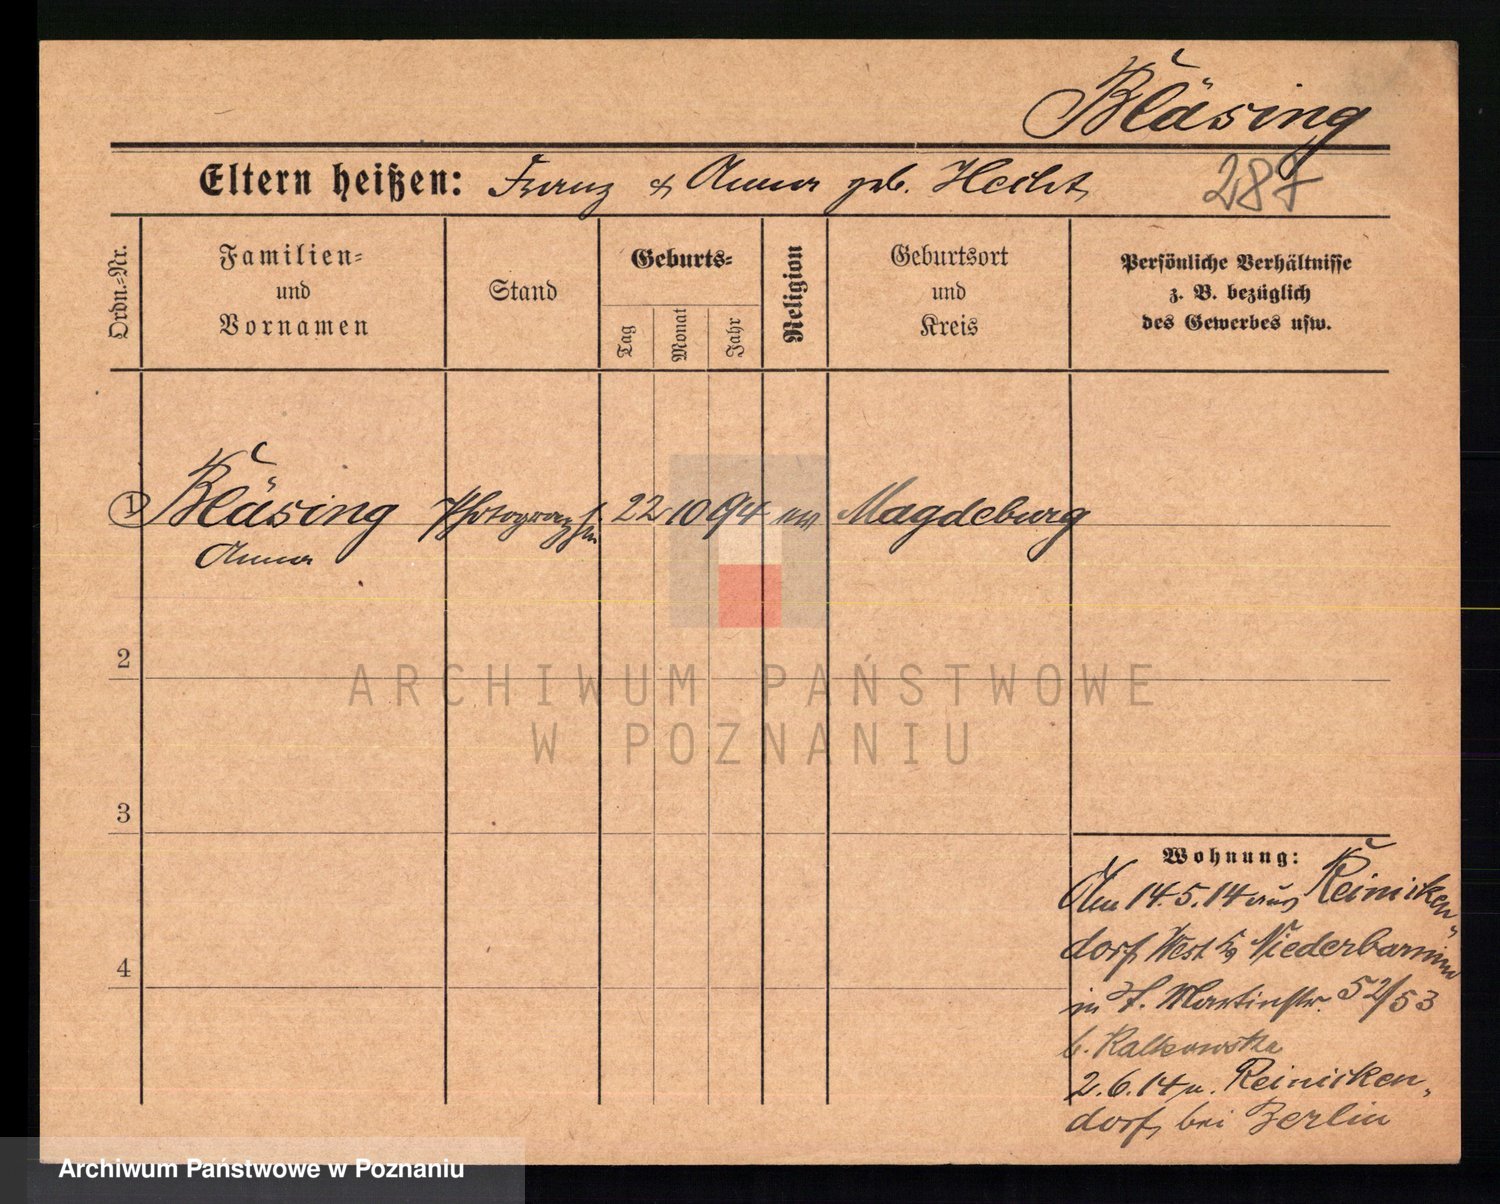 Bläsing
Eltern heißen: Franz & Anna geb. Hecht
287
Ordn.=Nr.
Familien=
und
Vornamen
Stand
Geburts=
Tag
Monat
Jahr
Religion
Geburtsort
und
Kreis
Persönliche Verhältnisse
z. B. bezüglich
des Gewerbes usw.
1 Bläsing Photographin 22 10 94 ev Magdeburg
Anna
2
3
4
Wohnung:
Am 14.5.14 aus Reinicken=
dorf West Niederbarnim
in St. Martinstr. 52/53
b. Ratkowska
2.6.14 n. Reinicken=
dorf bei Berlin
ARCHIWUM PAŃSTWOWE
W POZNANIU
Archiwum Państwowe w Poznaniu